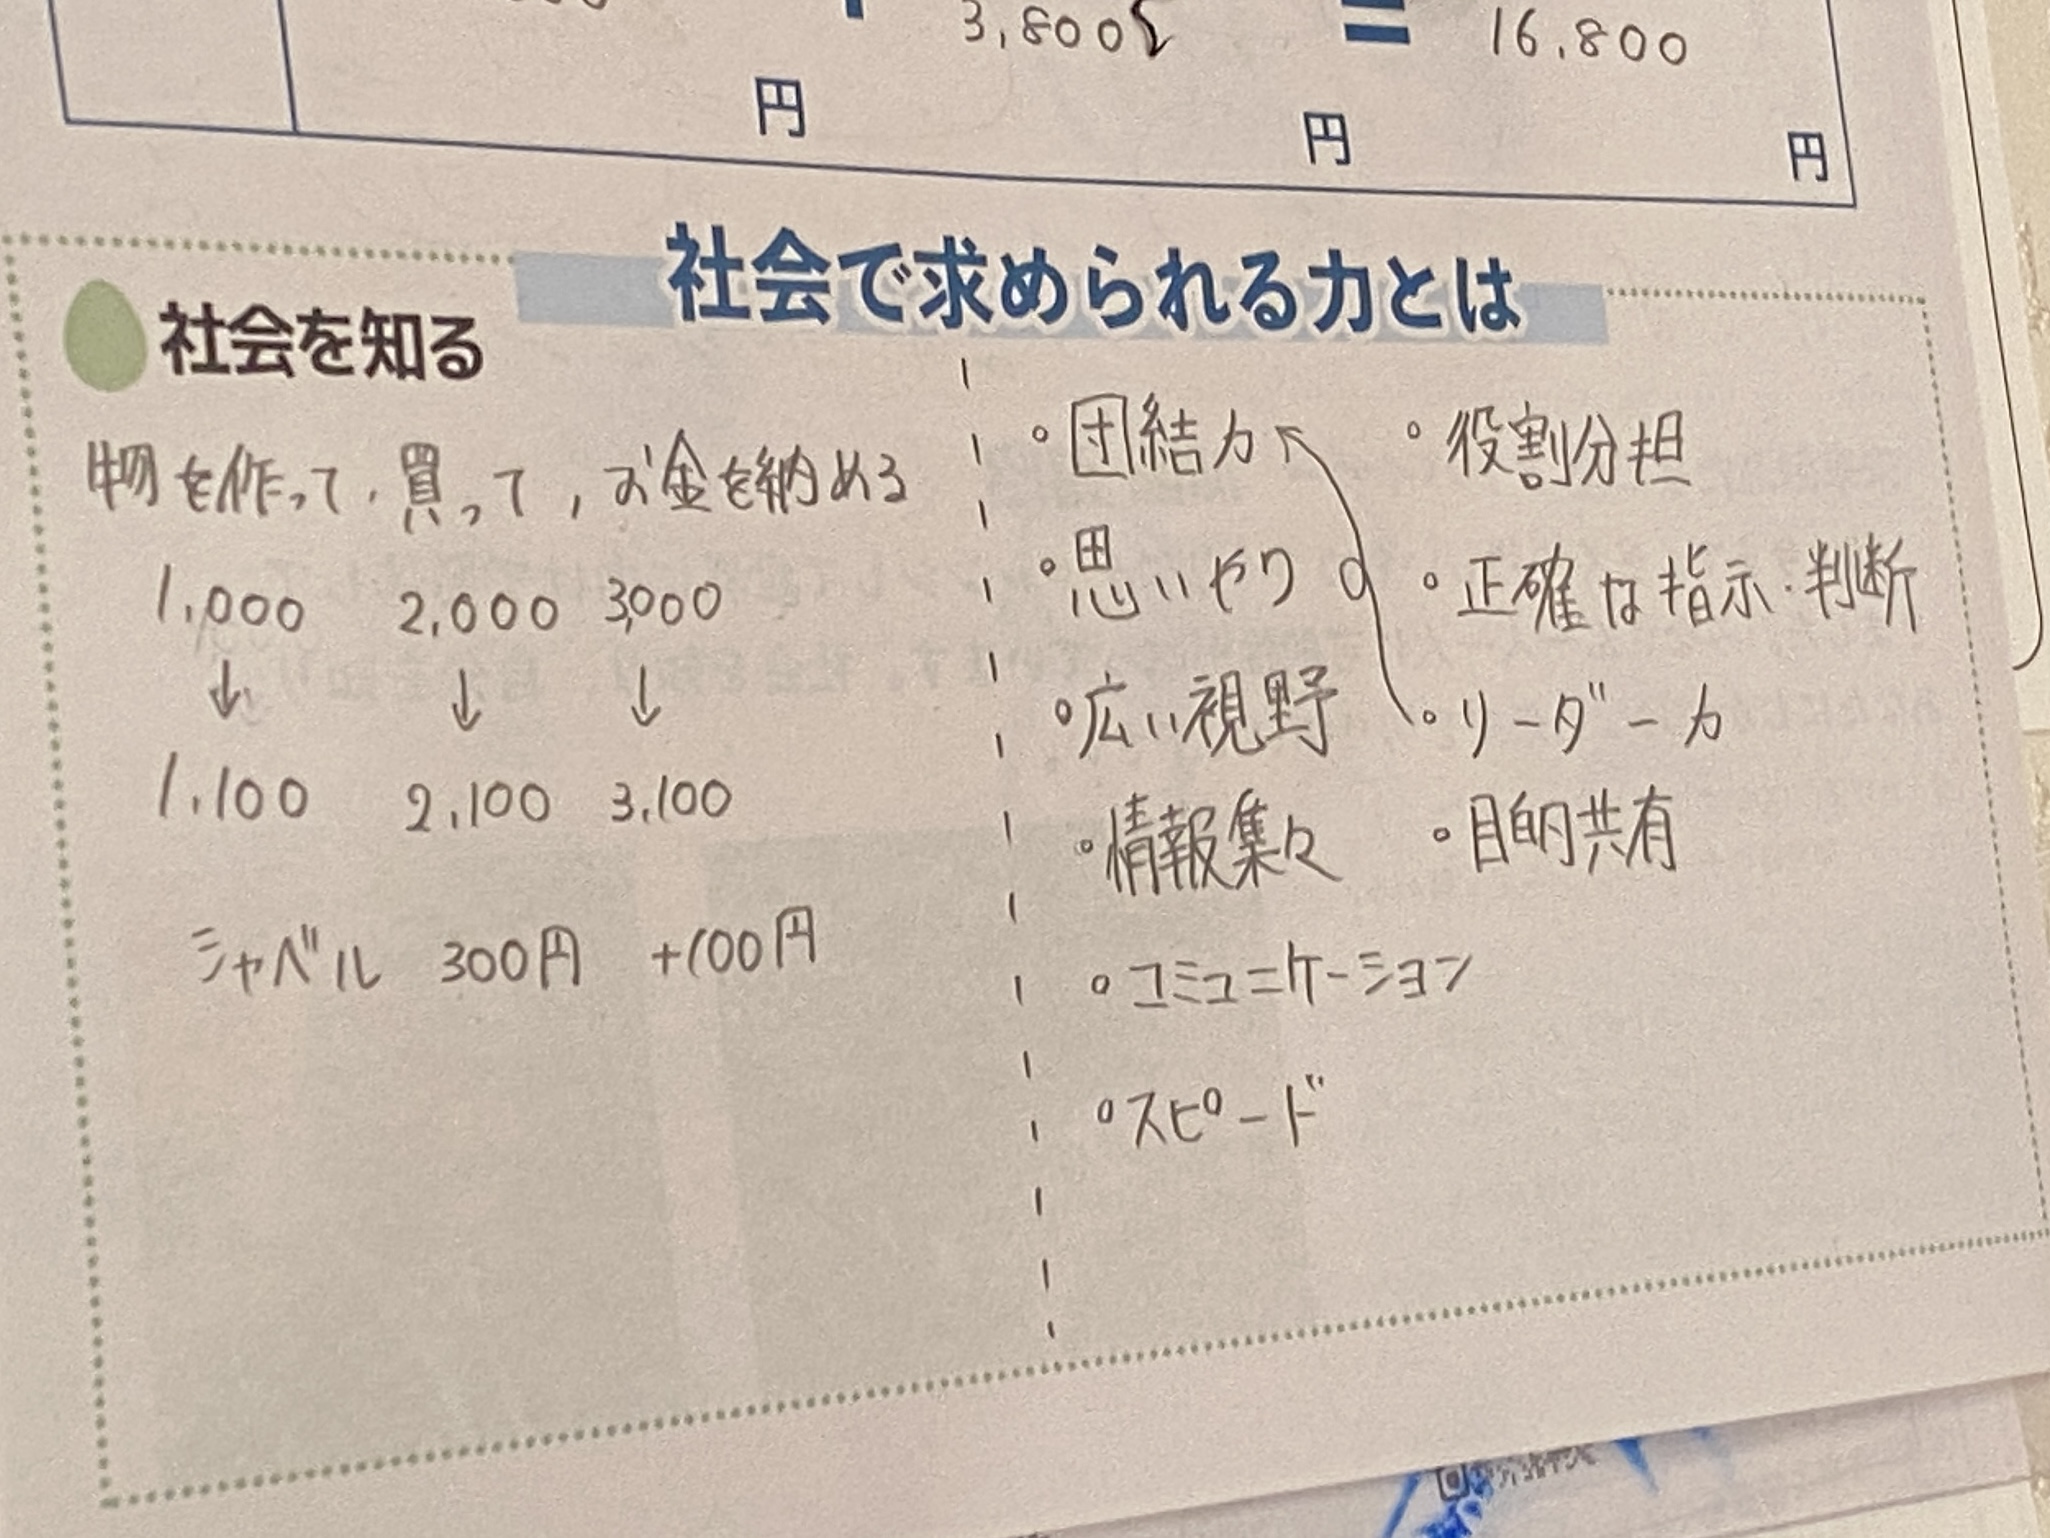 3,800
=
16,800
円
円
円
社会で求められる力とは
社会を知る
物を作って、買って、お金を納める
1,000 2,000 3,000
↓ ↓ ↓
1,100 2,100 3,100
シャベル 300円 +100円
・団結力
・思いやり
・広い視野
・情報集々
・コミュニケーション
・スピード
・役割分担
・正確な指示・判断
・リーダー力
・目的共有